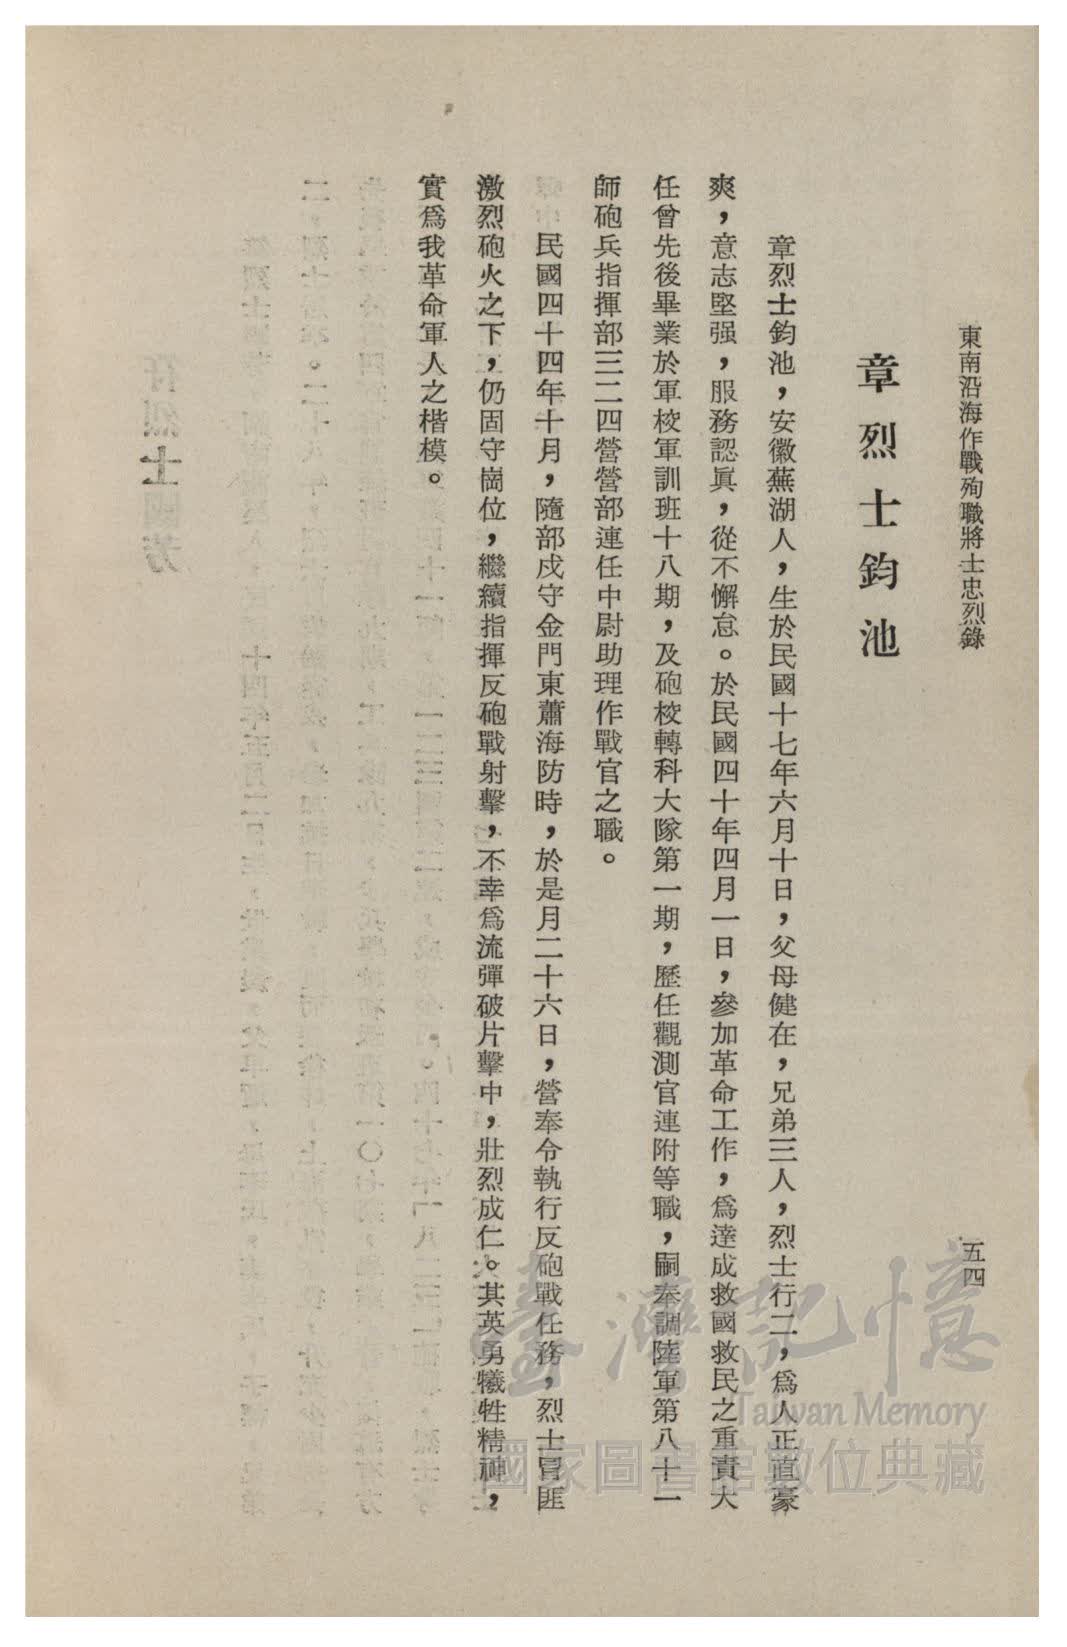 東南沿海作戰殉職將士忠烈錄
五四
章烈士鈞池
章烈士鈞池，安徽蕪湖人，生於民國十七年六月十日，父母健在，兄弟三人，烈士行二，爲人正直豪
爽，意志堅强，服務認眞，從不懈怠。於民國四十年四月一日，參加革命工作，爲達成救國救民之重責大
任曾先後畢業於軍校軍訓班十八期，及砲校轉科大隊第一期，歷任觀測官連附等職，嗣奉調陸軍第八十一
師砲兵指揮部三二四營營部連任中尉助理作戰官之職。
民國四十四年十月，隨部戍守金門東蕭海防時，於是月二十六日，營奉令執行反砲戰任務，烈士冒匪
激烈砲火之下，仍固守崗位，繼續指揮反砲戰射擊，不幸爲流彈破片擊中，壯烈成仁。其英勇犧牲精神，
實爲我革命軍人之楷模。
臺灣記憶
Taiwan Memory
國家圖書館數位典藏